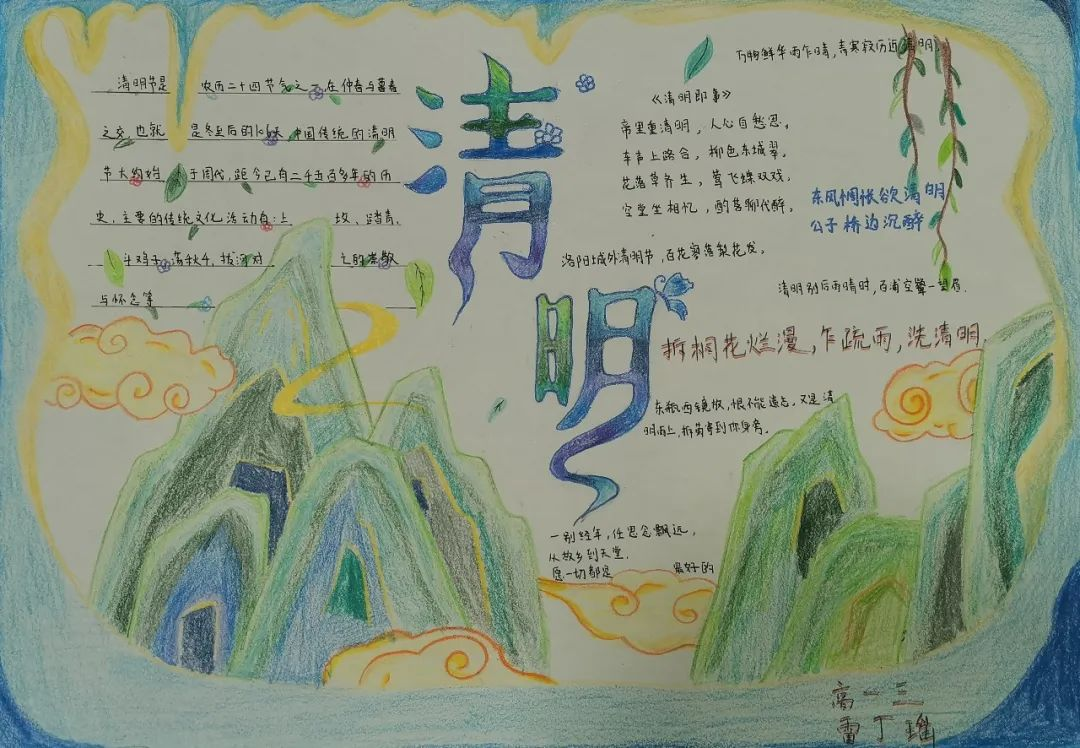 清明节是 农历二十四节气之一,在仲春与暮春
之交,也就 是冬至后的106天,中国传统的清明
节大约始 于周代,距今已有二千五百多年的历
史,主要的传统文化活动有:上 坟、踏青、
斗鸡子、荡秋千、拔河 对
与怀念等
清明
万物鲜华雨乍晴,春寒较历近清明。
《清明即事》
帝里重清明,人心自愁思。
车声上路合,柳色东城翠。
花落草齐生,莺飞蝶双戏。
空堂坐相忆,酌茗聊代醉。
东风惆怅欲清明
公子桥边沉醉
洛阳城外清明节,百花寥落梨花发。
清明别后雨晴时,
拆桐花烂漫,乍疏雨,洗清明。
恨不能遗忘。又是清
明雨上,折菊寄到你身旁。
一别经年,任思念飘远,
从故乡到天堂.
愿一切都是 最好的
高一三
雷丁